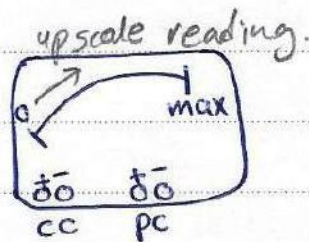 upscale reading.
0
max
+ - + -
cc pc